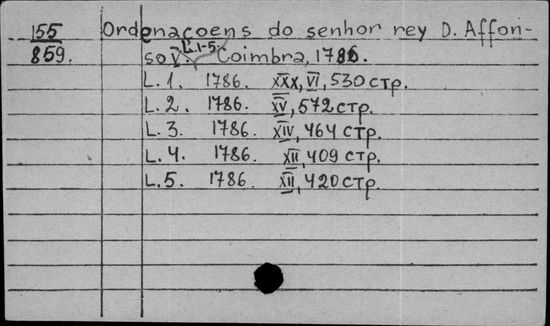 155 Ordenaçoens do senhor rey D. Affon-
859. so V. L.1-5. Coimbra, 1786.
L.1. 1786. XXX, VI, 530 стр.
L.2. 1786. XV, 572 стр.
L.3. 1786. XIV, 464 стр.
L.4. 1786. XII, 409 стр.
L.5. 1786. XII, 420 стр.